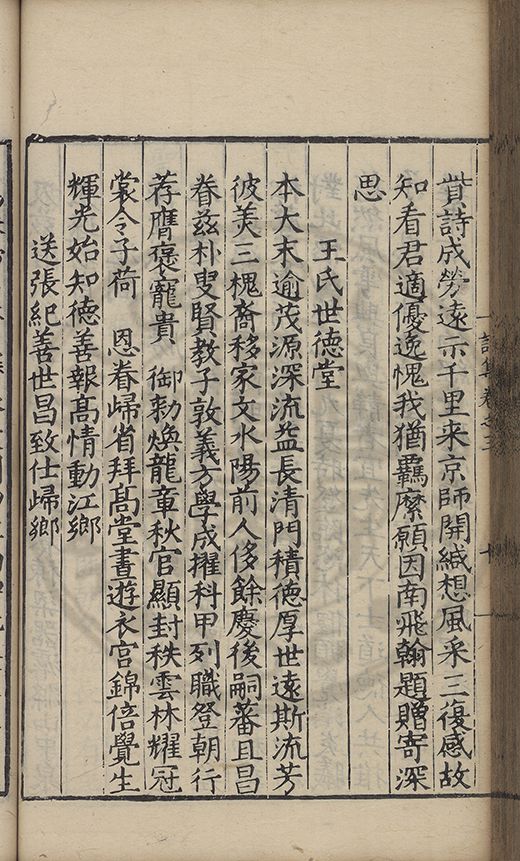 賞詩成勞遠示千里来京師開緘想風采三復感故
知看君適優逸愧我猶羈縻願因南飛翰題贈寄深
思
王氏世德堂
本大末逾茂源深流益長清門積德厚世遠斯流芳
彼美三槐裔移家文水陽前人侈餘慶後嗣蕃且昌
眷兹朴叟賢教子敦義方學成擢科甲列職登朝行
荐膺褒寵貴 御勑煥龍章秋官顯封秩雲林耀冠
裳令子荷 恩眷歸省拜髙堂晝遊衣宫錦倍覺生
輝光始知德善報髙情動江鄉
送張紀善世昌致仕歸鄉
詩集卷之三